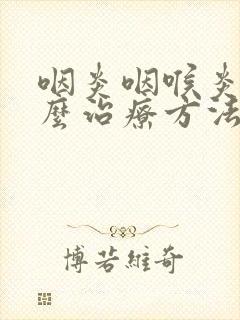 咽炎咽喉炎
麼治療方法
博若維奇